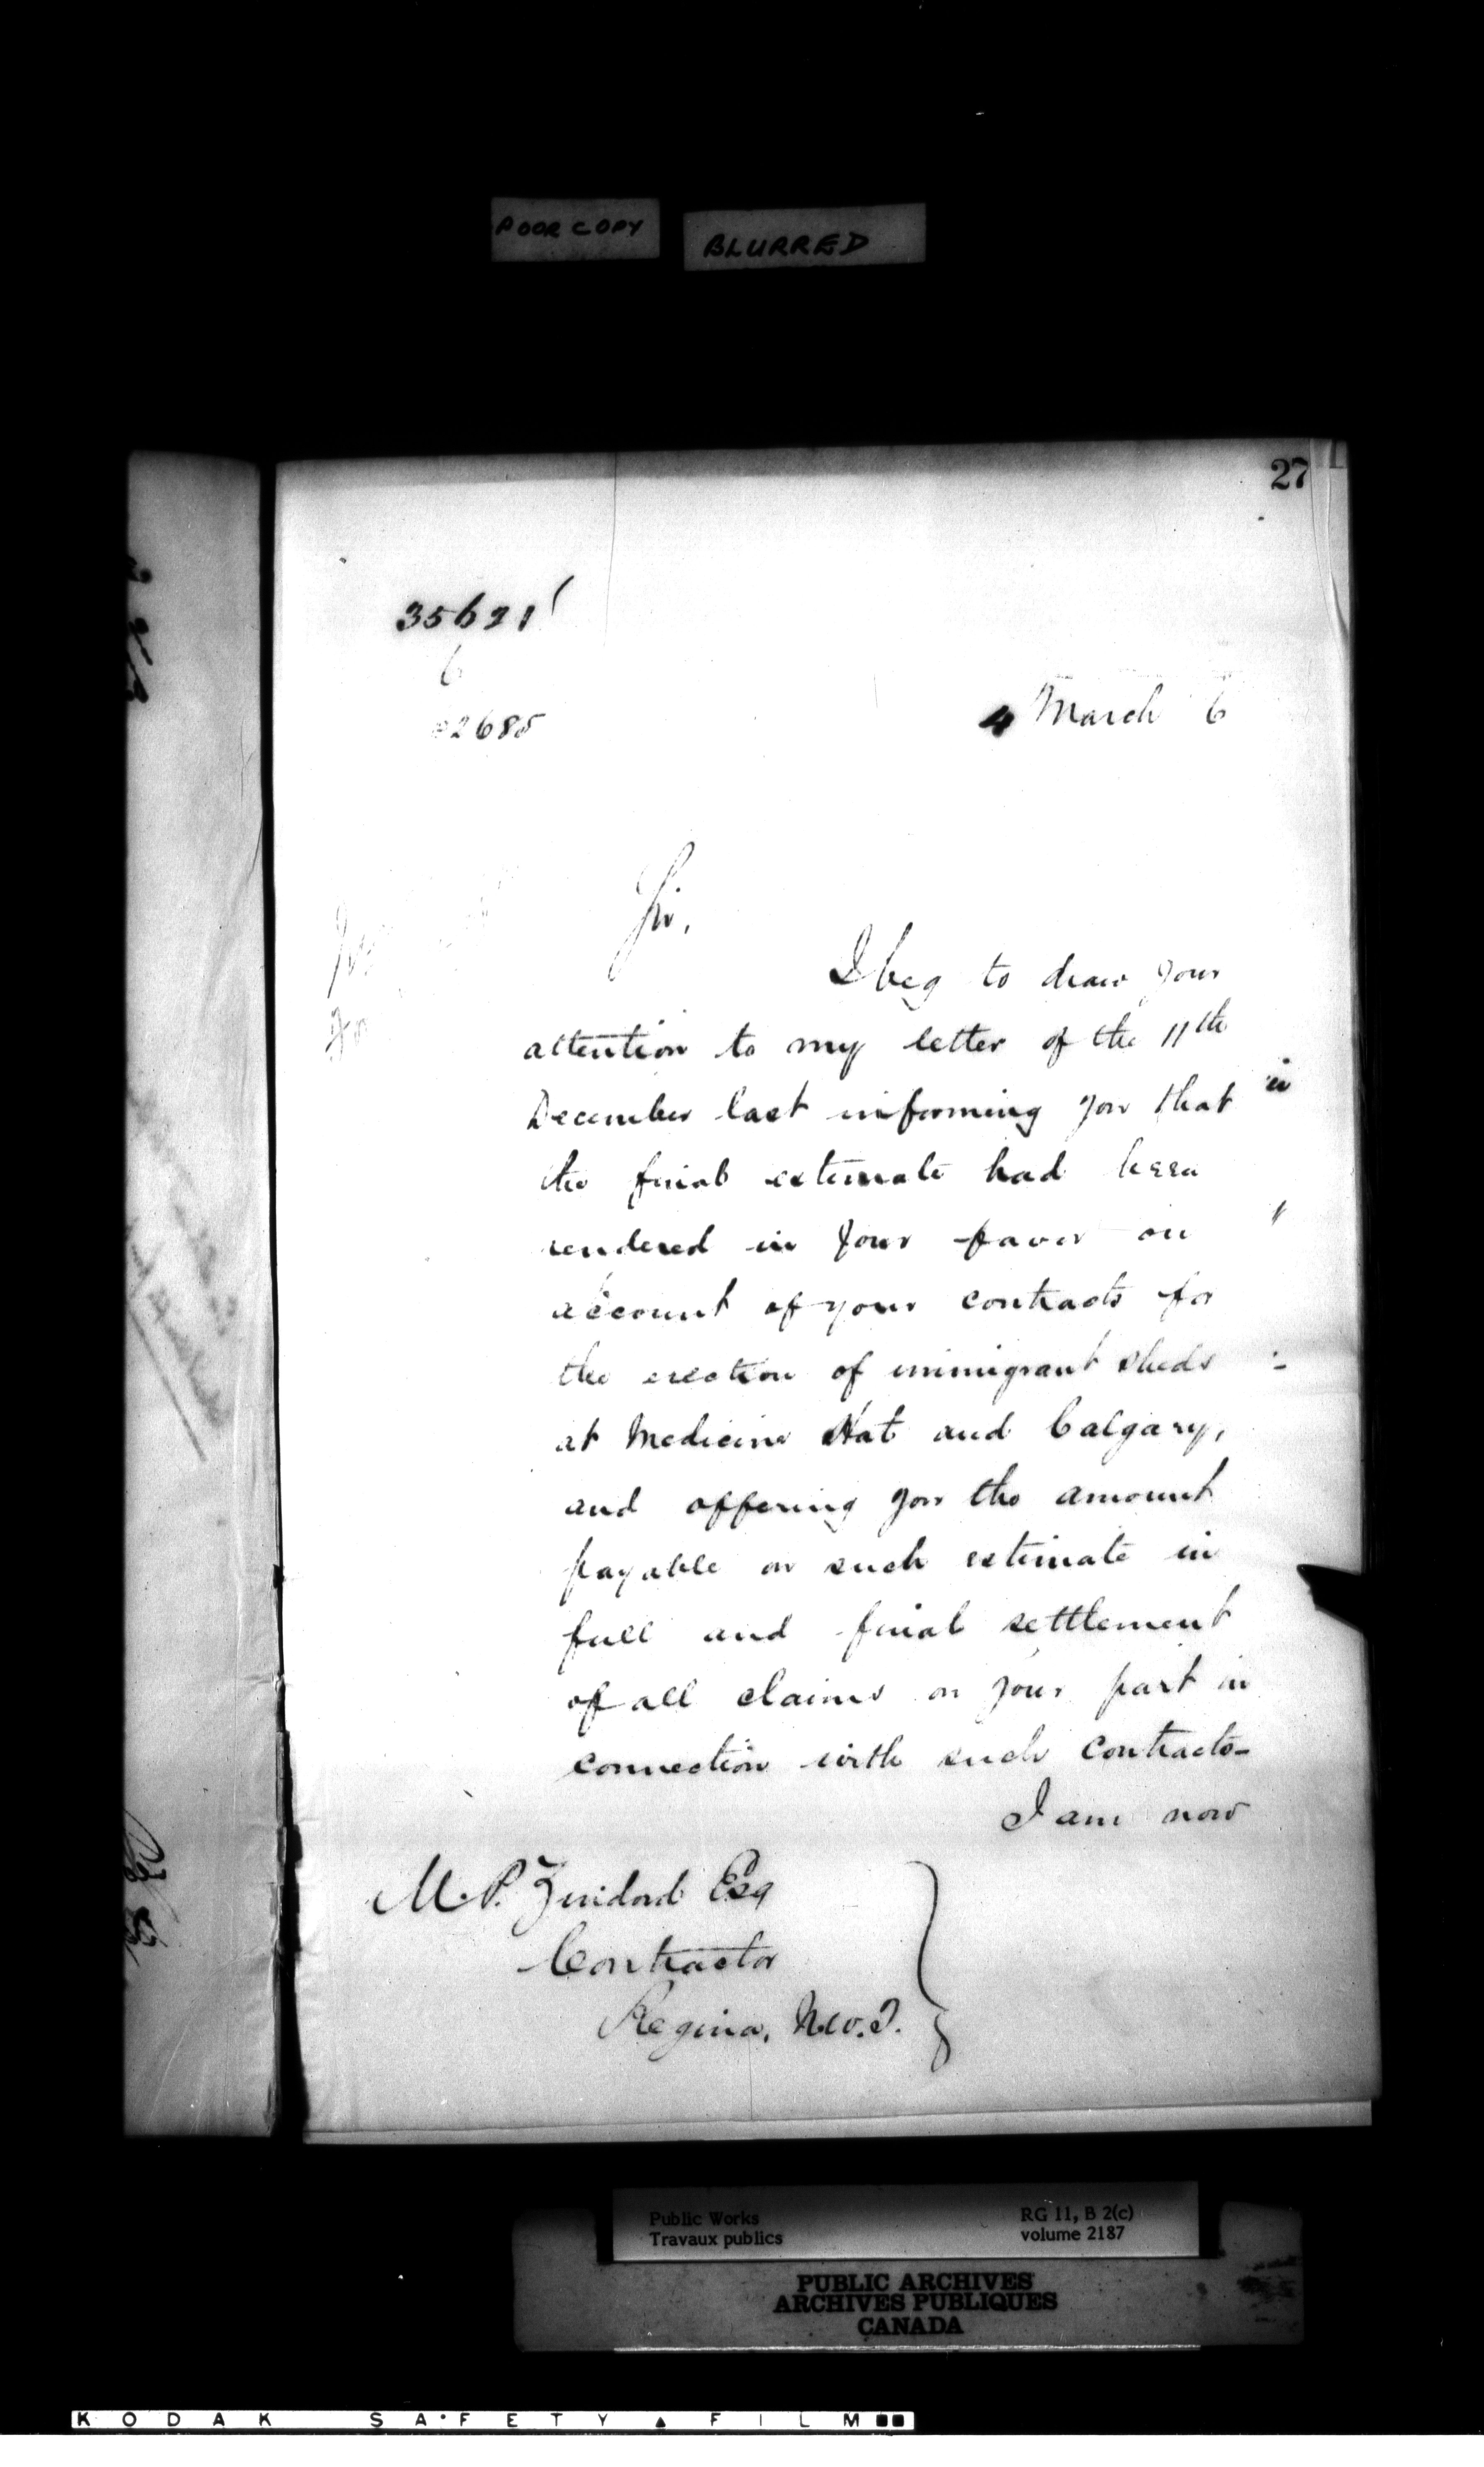 POOR COPY BLURRED
27
35621
6
2685
4 March 6
Sir,
I beg to draw your
attention to my letter of the 11th
December last informing you that
the final estimate had been
rendered in your favor on
account of your contracts for
the erection of immigrant sheds
at Medicine Hat and Calgary,
and offering you the amount
payable on such estimate in
full and final settlement
of all claims on your part in
connection with such contracts-
I am now
M. P. Esq
Contractor
Regina, N.W.T.
Public Works
Travaux publics
RG 11, B 2(c)
volume 2187
PUBLIC ARCHIVES
ARCHIVES PUBLIQUES
CANADA
KODAK SAFETY FILM